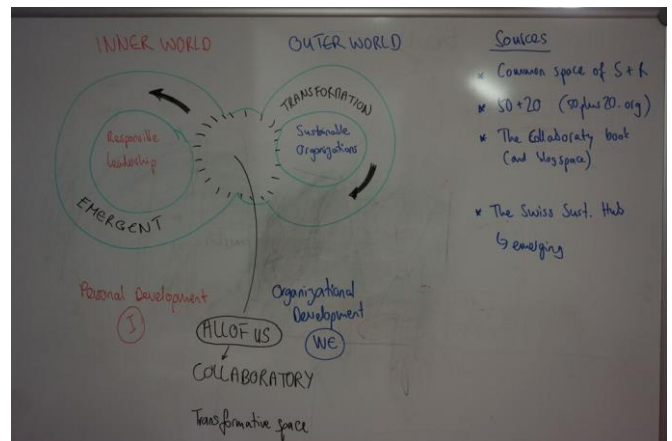 INNER WORLD
OUTER WORLD
TRANSFORMATION
Responsible
Leadership
Sustainable
Organizations
EMERGENT
Personal Development
I
Organizational
Development
WE
ALL OF US
COLLABORATORY
Transformative space
Sources
* Common space of S +
* 50+20 (50plus20.org)
* The Collaboraty book
(and blogspace)
* The Swiss Sust. Hub
↳ emerging